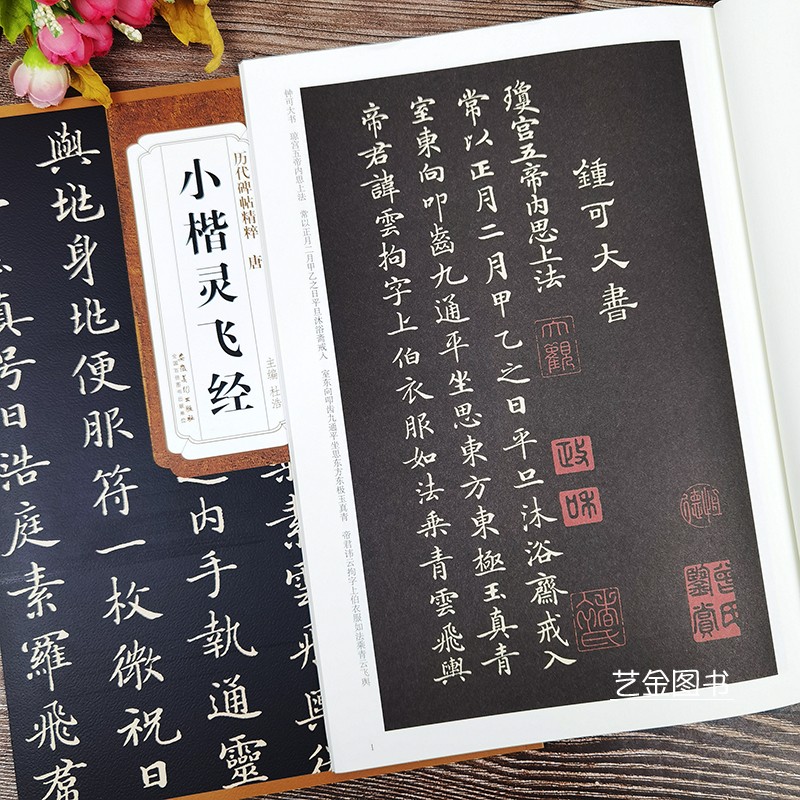 鍾可大書
瓊宮五帝内思上法
常以正月二月甲乙之日平旦沐浴齋戒入
室東向叩齒九通平坐思東方東極玉真青
帝君諱雲拘字上伯衣服如法乘青雲飛輿
大觀
政和
钟可大书 琼宫五帝内思上法 常以正月二月甲乙之日平旦沐浴斋戒入 室东向叩齿九通平坐思东方东极玉真青 帝君讳云拘字上伯衣服如法乘青云飞舆
1
历代碑帖精粹 唐
小楷灵飞经
主编 杜浩
内手執通靈
身
便服符一枚微祝日
真号日浩庭素羅飛
艺金图书